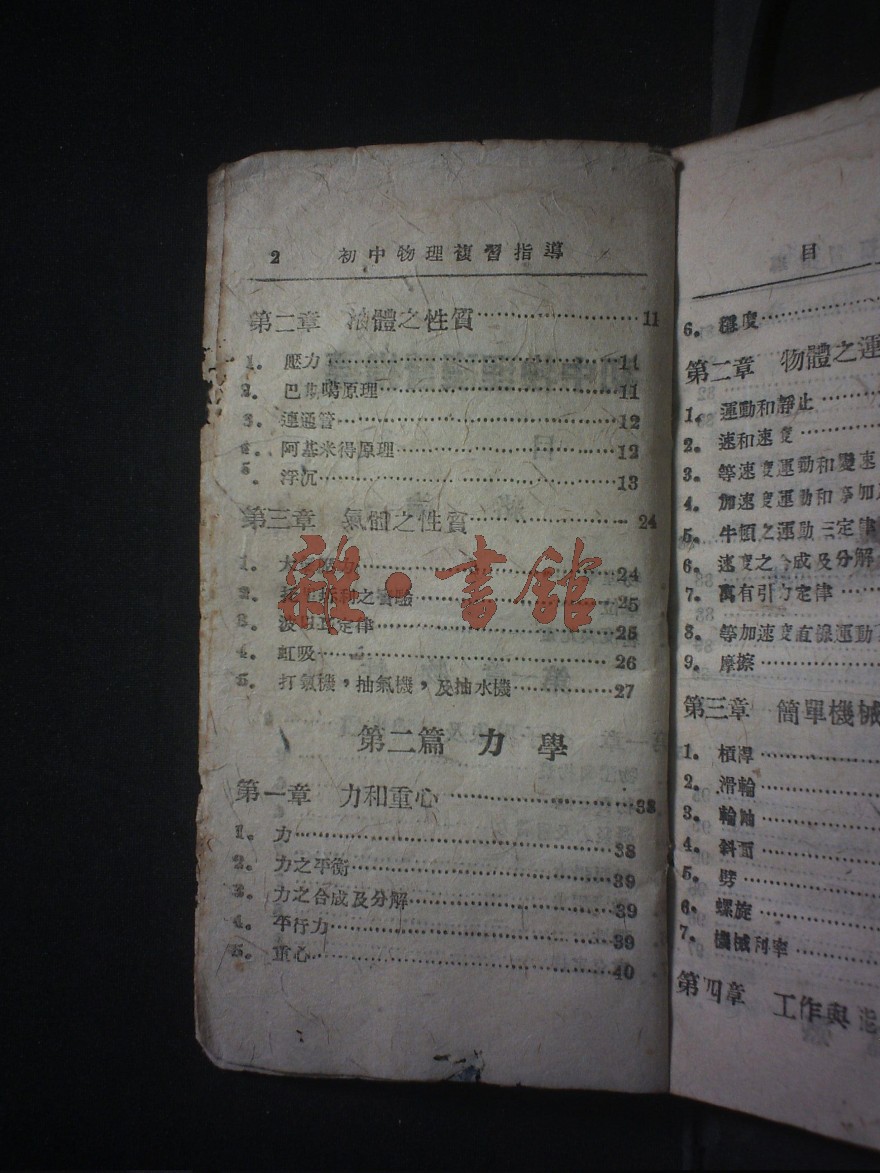 2 初中物理複習指導
第二章 油體之性質……11
1. 壓力……11
2. 巴斯噶原理……11
3. 連通管……12
4. 阿基米得原理……12
5. 浮沉……13
第三章 氣體之性質……24
1. 大氣壓力……24
2. 托里拆利之實驗……25
3. 波以耳定律……25
4. 虹吸……26
5. 打氣機，抽氣機，及抽水機……27
第二篇 力學
第一章 力和重心……38
1. 力……38
2. 力之平衡……39
3. 力之合成及分解……39
4. 平行力……39
5. 重心……40
雜·書館
目
6. 溫度……
第二章 物體之運
1. 運動和靜止……
2. 速和速度……
3. 等速度運動和變速
4. 加速度運動和等加
5. 牛頓之運動三定律
6. 速度之合成及分解
7. 萬有引力定律……
8. 等加速度直線運動
9. 摩擦……
第三章 簡單機械
1. 槓桿……
2. 滑輪……
3. 輪軸……
4. 斜面……
5. 劈……
6. 螺旋……
7. 機械利率……
第四章 工作與